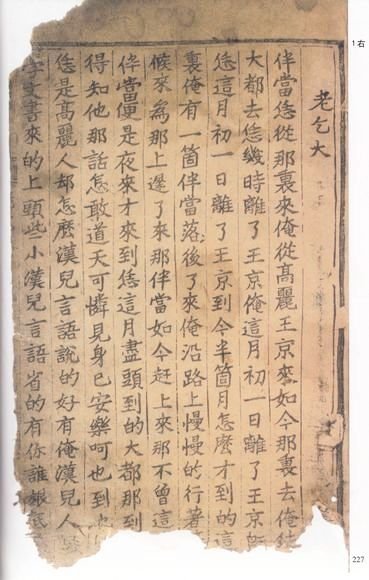 1右
老乞大
伴當恁從那裏來俺從高麗王京來如今那裏去俺往
大都去恁幾時離了王京俺這月初一日離了王京既
恁這月初一日離了王京到今半箇月怎麽才到的這
裏俺有一箇伴當落後了來俺沿路上慢慢的行著
候來為那上遲了來那伴當如今赶上來那不曾這
伴當便是夜來才來到恁這月盡頭到的大都那到
得知他那話怎敢道天可憐見身已安樂呵也到
恁是高麗人却怎麽漢兒言語說的好有俺漢兒人
學文書來的上頭些小漢兒言語省的有你誰根底
227